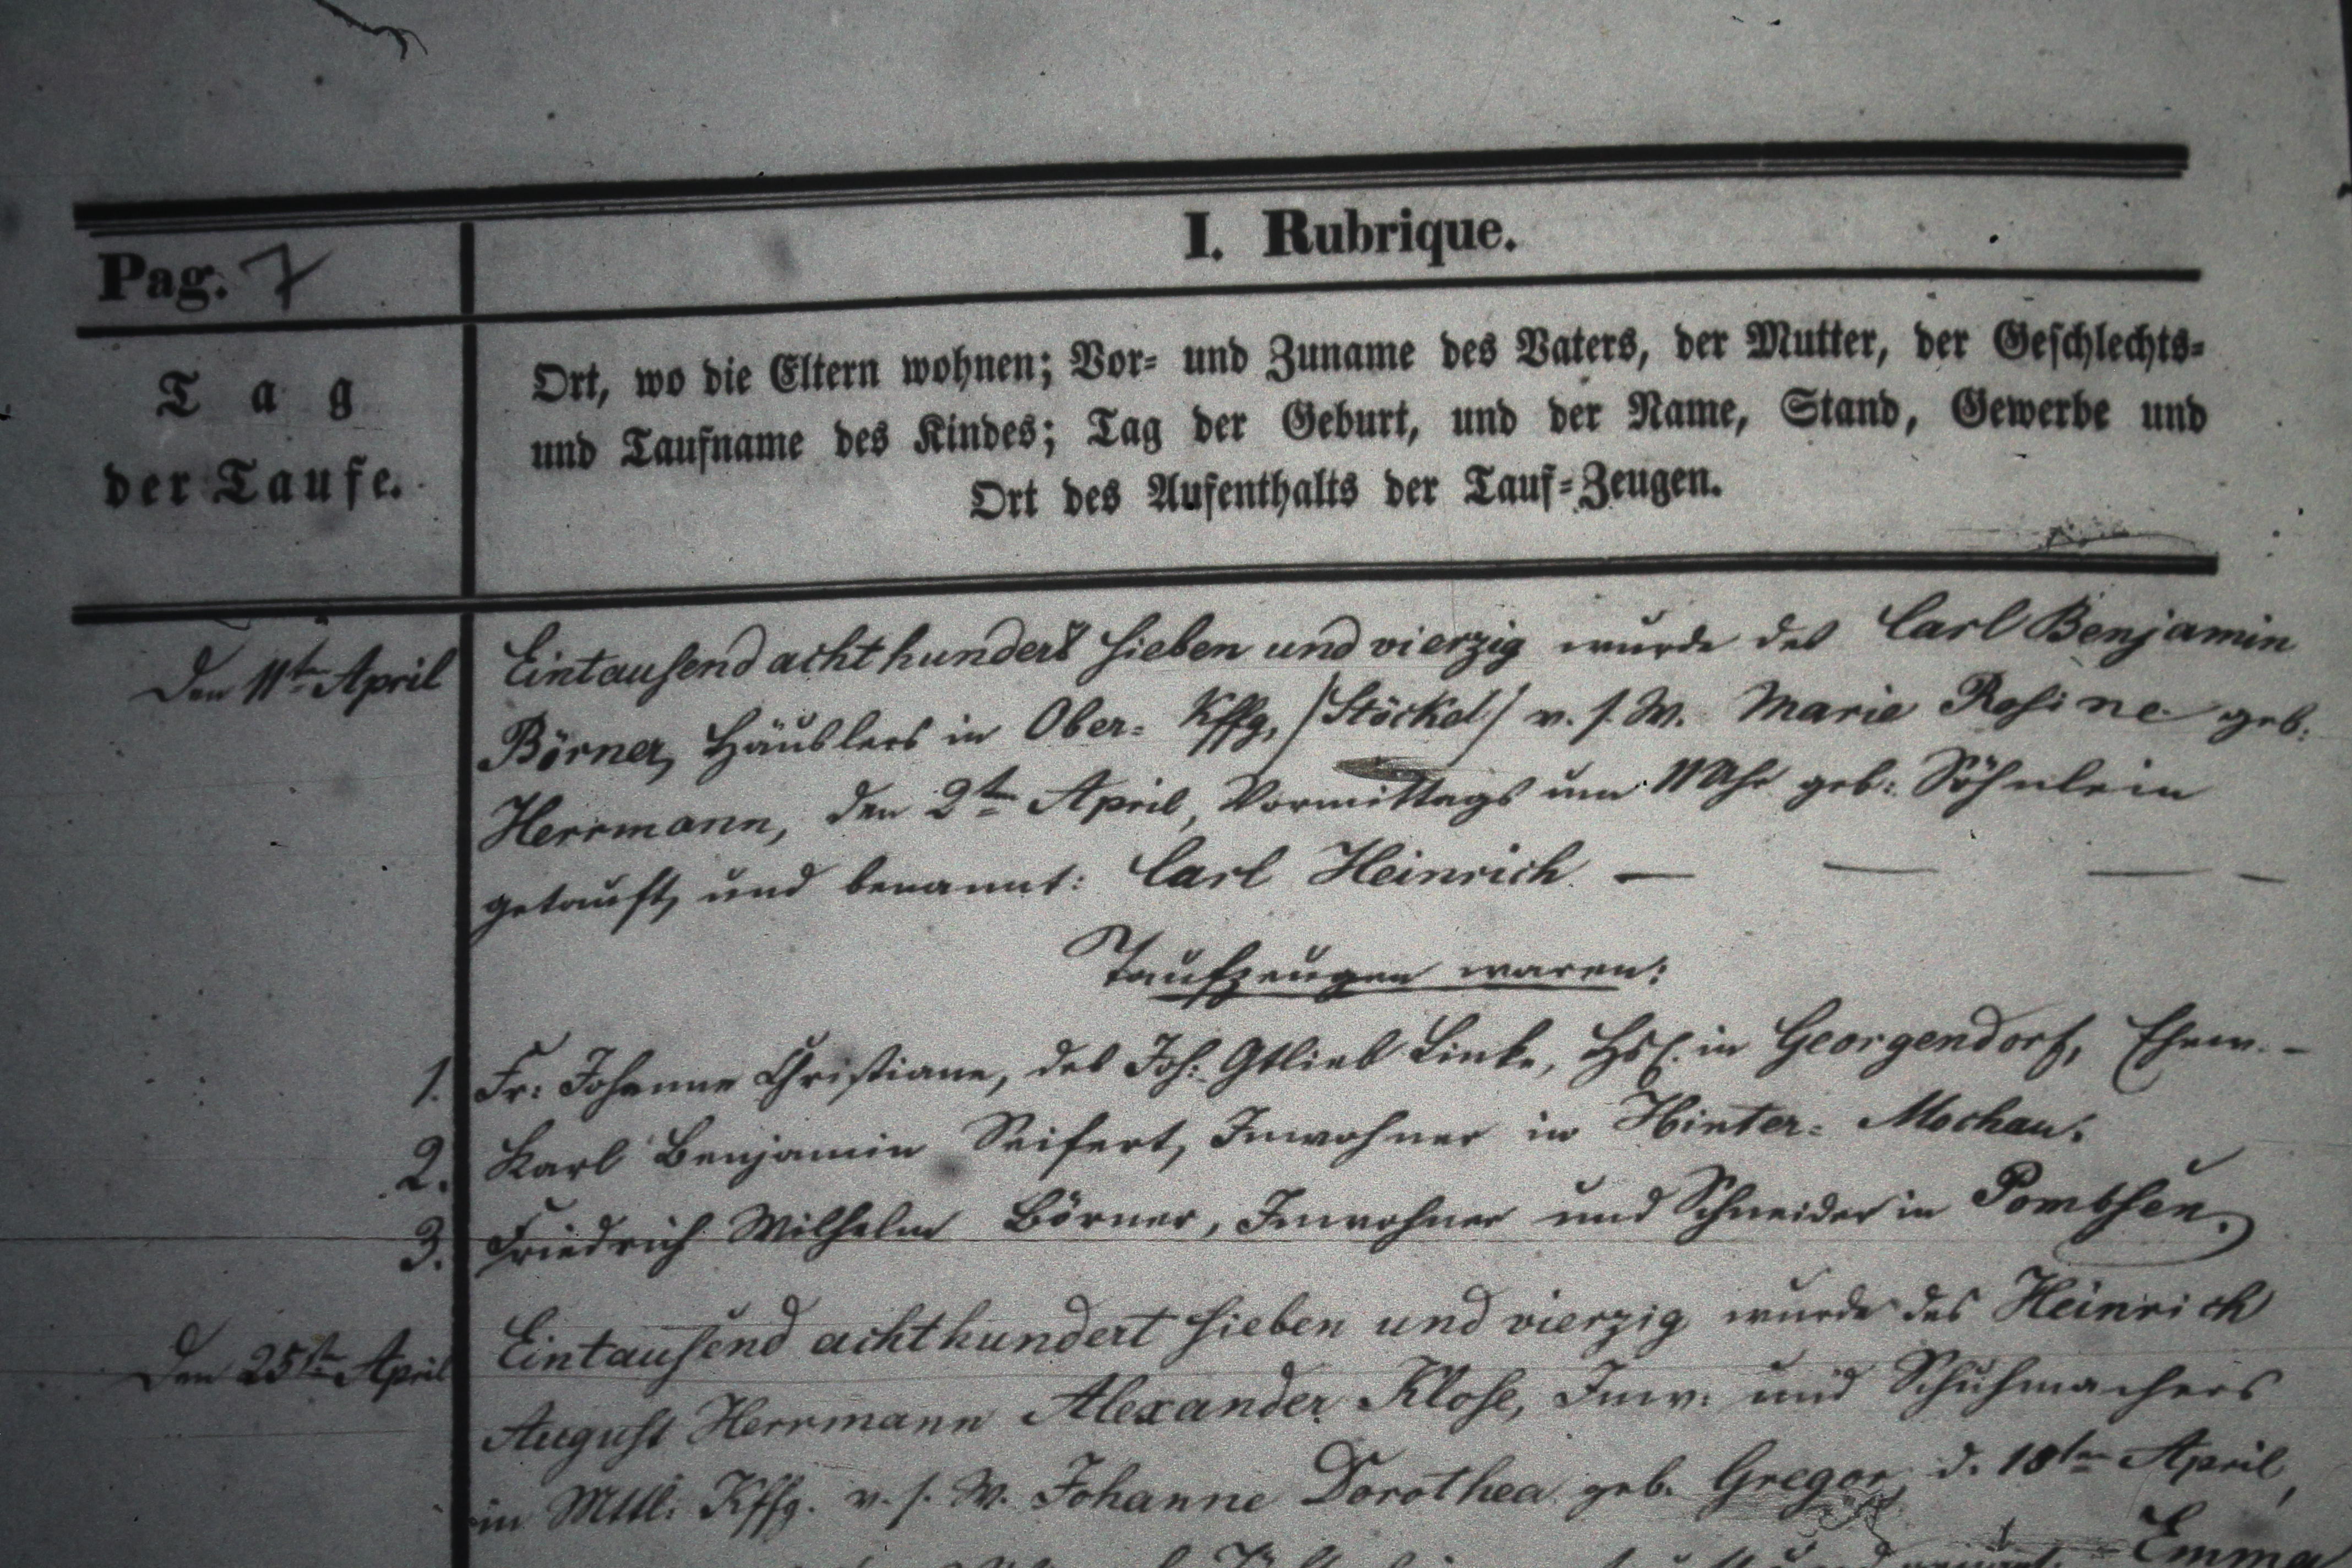 I. Rubrique.
Pag. 7
Tag
der Taufe.
Ort, wo die Eltern wohnen; Vor- und Zuname des Vaters, der Mutter, der Geschlechts-
und Taufname des Kindes; Tag der Geburt, und der Name, Stand, Gewerbe und
Ort des Aufenthalts der Tauf-Zeugen.
Den 11ten April
Eintausend achthundert sieben und vierzig wurde des Carl Benjamin
Börner, Häuslers in Ober- Kffg, /Stöckel/ v. s. W. Marie Rosine geb:
Herrmann, den 2ten April, Vormittags um 11 Uhr geb: Söhnlein
getauft, und benannt: Carl Heinrich — — — -
Taufzeugen waren:
1. Fr: Johanne Christiane, des Joh: Gtlieb Linke, Hsl. in Georgendorf, Ehew. -
2. Karl Benjamin Seifert, Inwohner in Hinter- Mochau.
3. Friedrich Wilhelm Börner, Inwohner und Schneider in Pombsen.
Den 25ten April
Eintausend achthundert sieben und vierzig wurde des Heinrich
August Herrmann Alexander Klose, Inw: und Schuhmachers
in Mttl: Kffg. v. s. W. Johanne Dorothea geb. Gregor, d. 18ten April,
Emma